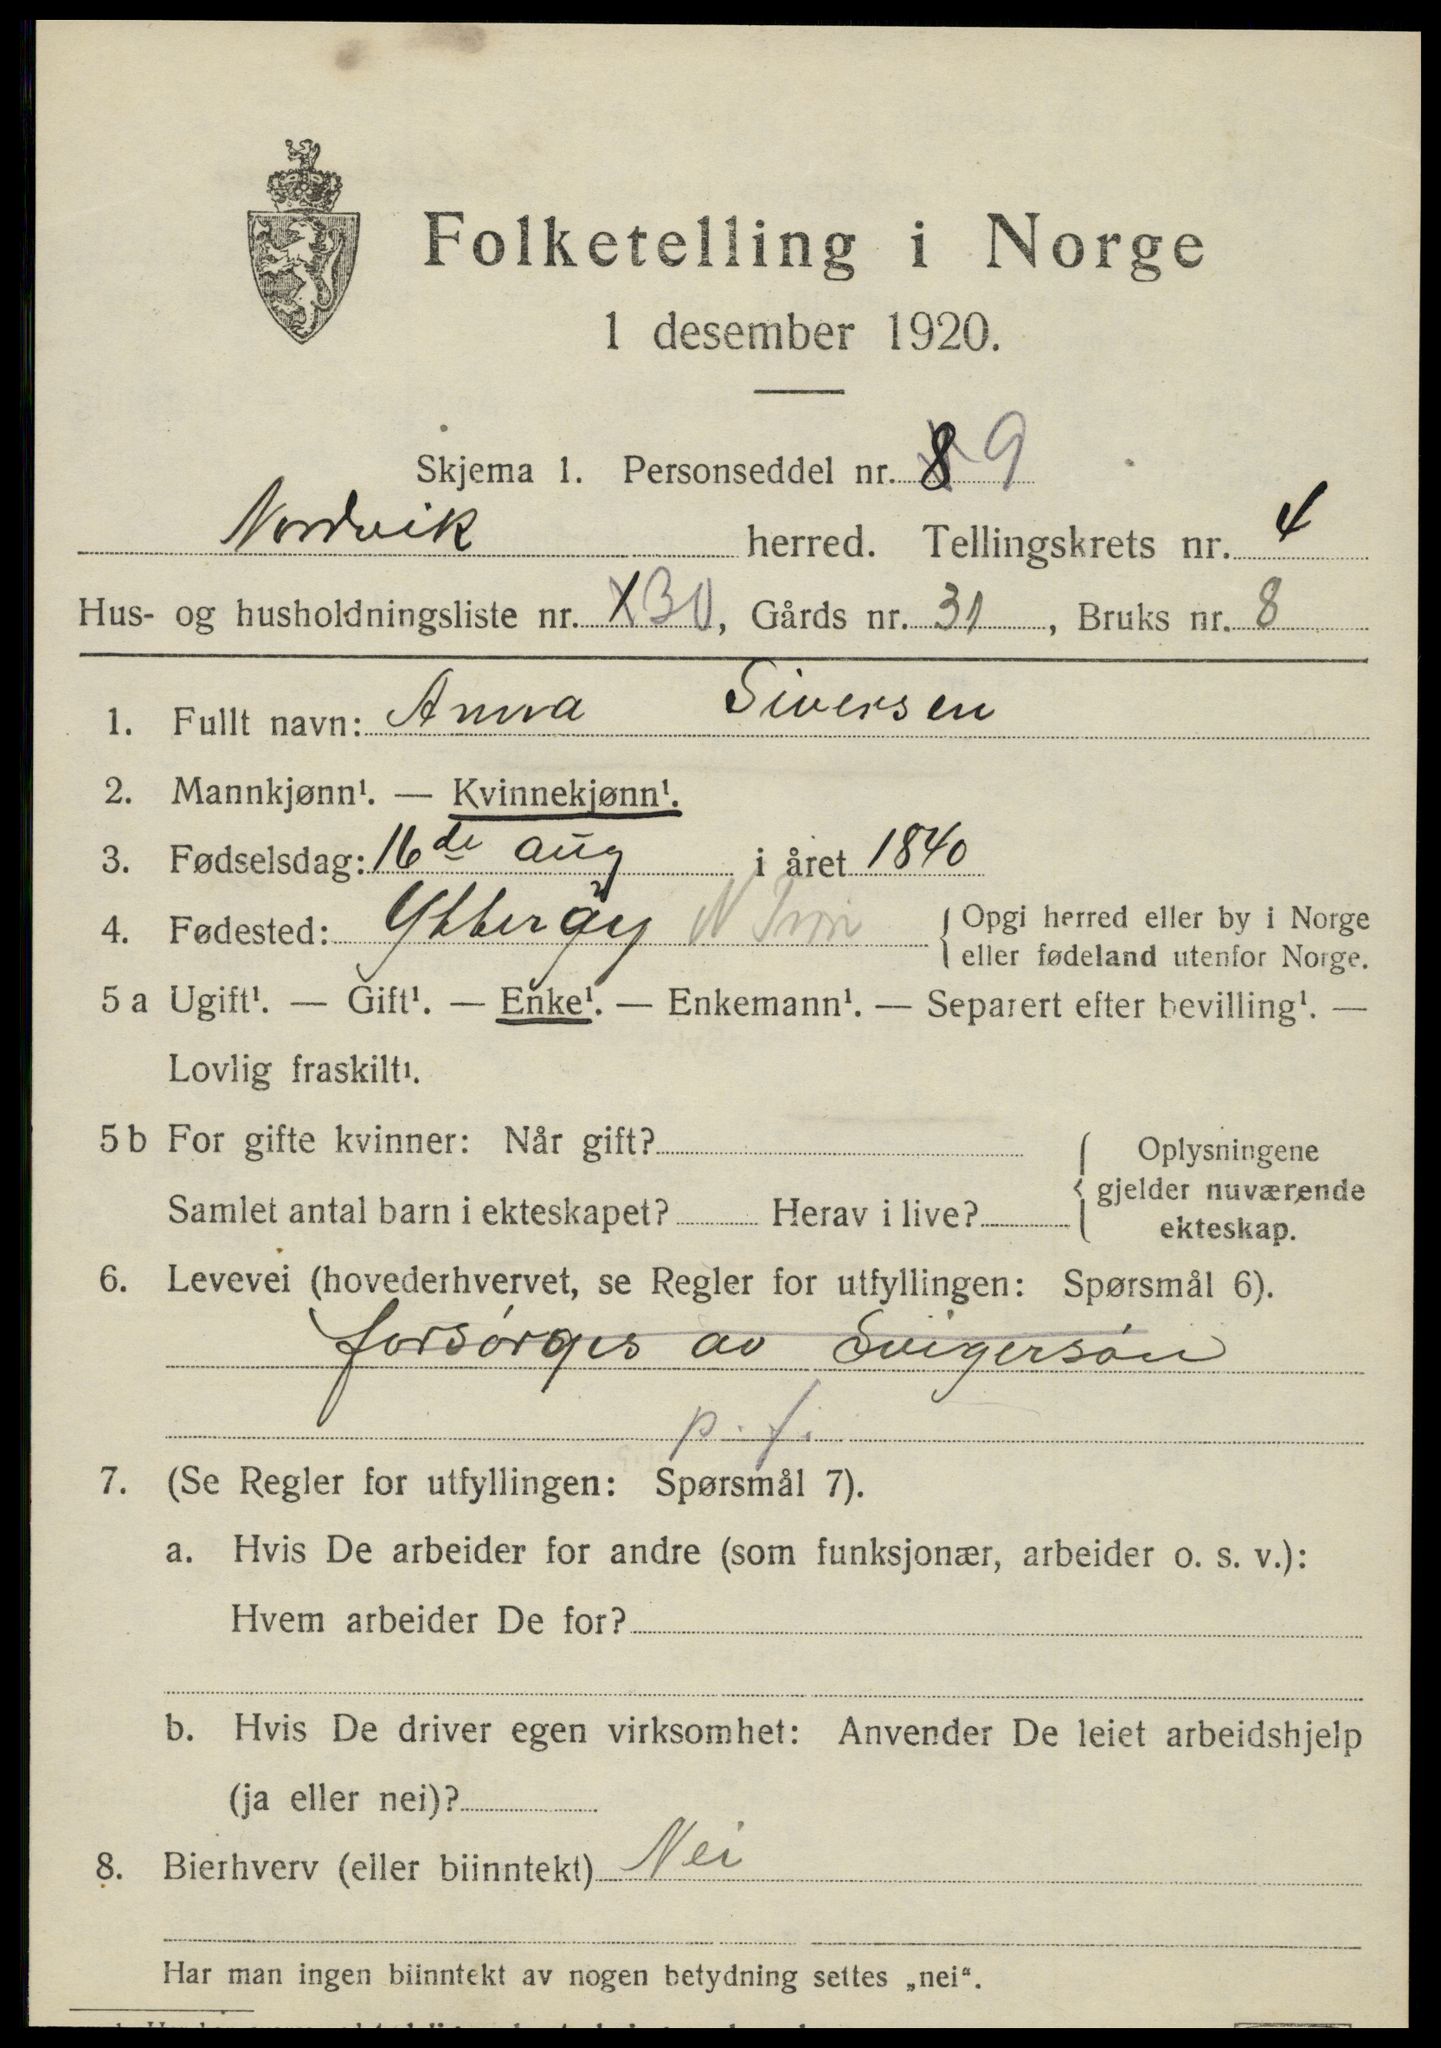 Folketelling i Norge
1 desember 1920.
Skjema 1. Personseddel nr. 8 9
Nordvik herred. Tellingskrets nr. 4
Hus- og husholdningsliste nr. 30, Gårds nr. 31, Bruks nr. 8
1. Fullt navn: Anna Siversen
2. Mannkjønn¹. — Kvinnekjønn¹.
3. Fødselsdag: 16de aug i året 1840
4. Fødested: Ytterøy N. { Opgi herred eller by i Norge
eller fødeland utenfor Norge.
5 a Ugift¹. — Gift¹. — Enke¹. — Enkemann¹. — Separert efter bevilling¹. —
Lovlig fraskilt¹.
5 b For gifte kvinner: Når gift? { Oplysningene
gjelder nuværende
Samlet antal barn i ekteskapet? Herav i live? ekteskap.
6. Levevei (hovederhvervet, se Regler for utfyllingen: Spørsmål 6).
forsörges av Svigersön
p. f.
7. (Se Regler for utfyllingen: Spørsmål 7).
a. Hvis De arbeider for andre (som funksjonær, arbeider o. s. v.):
Hvem arbeider De for?
b. Hvis De driver egen virksomhet: Anvender De leiet arbeidshjelp
(ja eller nei)?
8. Bierhverv (eller biinntekt) Nei
Har man ingen biinntekt av nogen betydning settes „nei“.